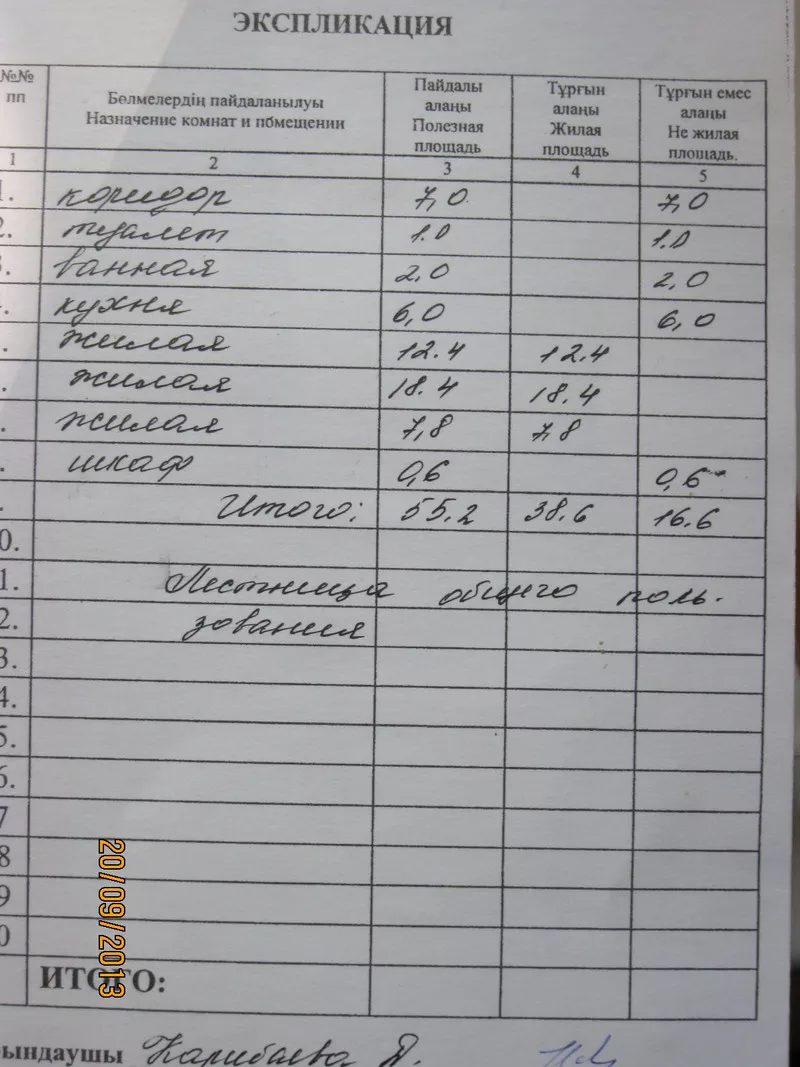 ЭКСПЛИКАЦИЯ
№№ пп | Бөлмелердің пайдаланылуы Назначение комнат и помещении | Пайдалы алаңы Полезная площадь | Тұрғын алаңы Жилая площадь | Тұрғын емес алаңы Не жилая площадь.
1 2 3 4 5
1. коридор 7,0 7,0
2. туалет 1.0 1.0
3. ванная 2,0 2,0
. кухня 6,0 6,0
. жилая 12.4 12.4
. жилая 18.4 18.4
. жилая 7,8 7,8
. шкаф 0,6 0,6
. Итого: 55.2 38.6 16.6
0.
1. Лестница общего поль-
2. зования
3.
4.
5.
6.
7
8
9
0
ИТОГО:
20/09/2013
рындаушы Карибаева